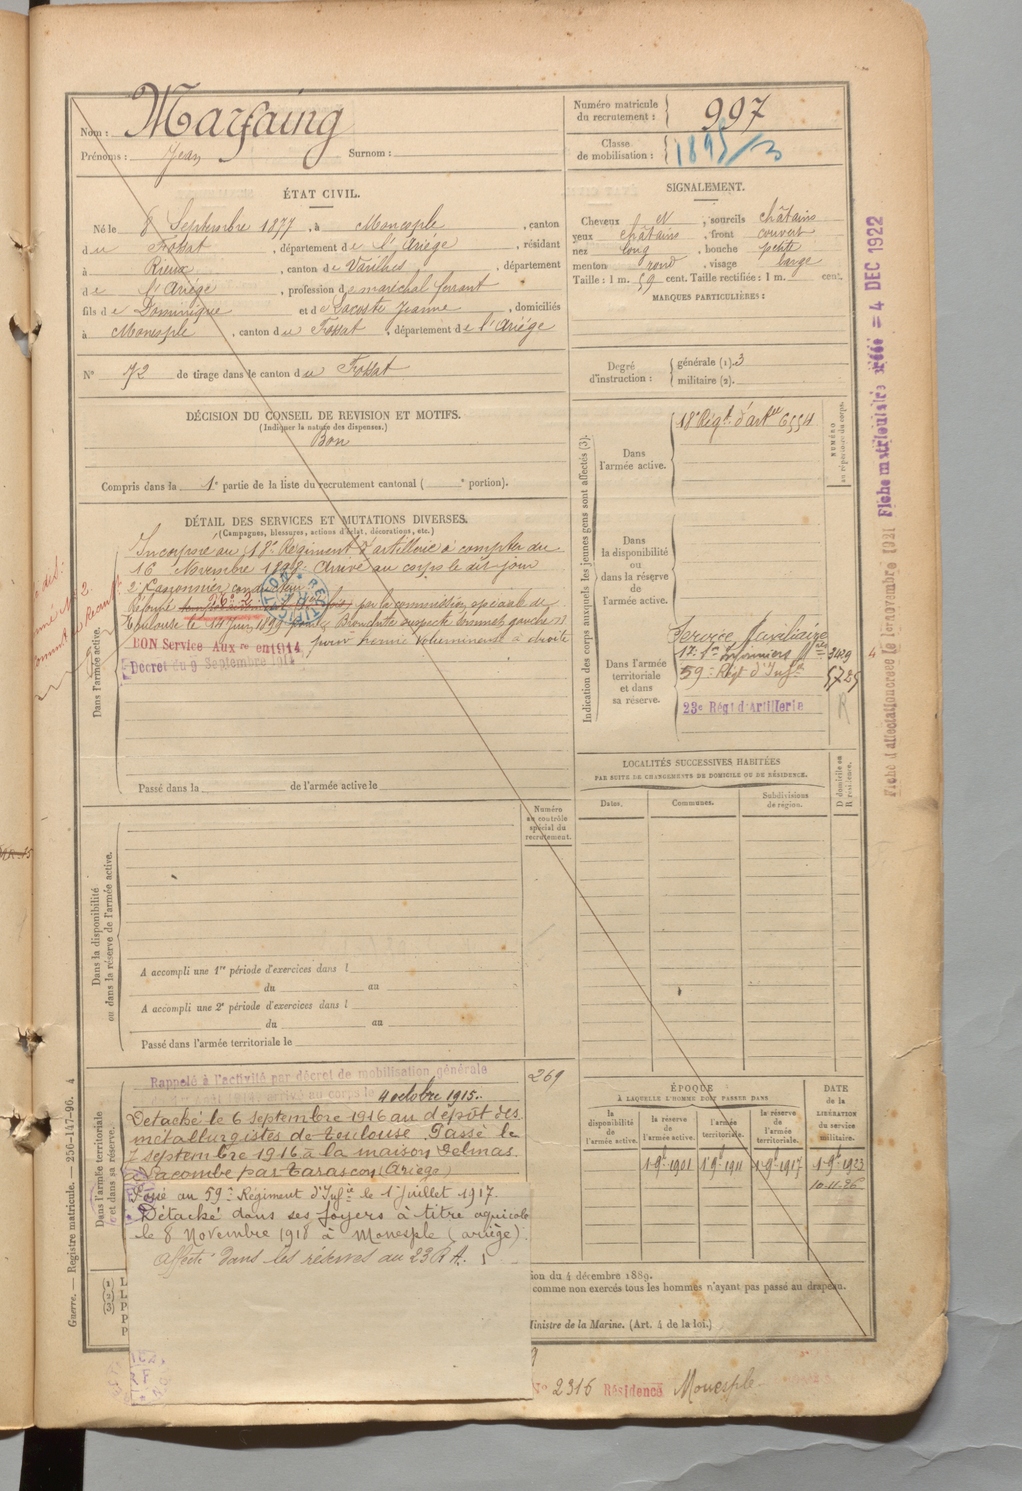 Nom : Marfaing
Prénoms : Jean Surnom :
Numéro matricule
du recrutement : 997
Classe
de mobilisation : 1895/3
ÉTAT CIVIL.
Né le 8 Septembre 1877, à Monesple, canton
du Fossat, département de l'Ariège, résidant
à Rieux, canton de Varilhes, département
de l'Ariège, profession de maréchal ferrant
fils de Dominique et de Lacoste Jeanne, domiciliés
à Monesple, canton du Fossat, département de l'Ariège
N° 72 de tirage dans le canton du Fossat
SIGNALEMENT.
Cheveux N, sourcils châtains
yeux châtains, front couvert
nez long, bouche petite
menton rond, visage large
Taille : 1 m. 59 cent. Taille rectifiée : 1 m. cent.
MARQUES PARTICULIÈRES :
Degré
d'instruction :
générale (1). 3
militaire (2).
DÉCISION DU CONSEIL DE REVISION ET MOTIFS.
(Indiquer la nature des dispenses.)
Bon
Compris dans la 1e partie de la liste du recrutement cantonal ( e portion).
DÉTAIL DES SERVICES ET MUTATIONS DIVERSES.
(Campagnes, blessures, actions d'éclat, décorations, etc.)
Dans l'armée active.
Incorporé au 18e Régiment d'artillerie à compter du
16 Novembre 1898. Arrivé au corps le dit jour
2e Canonnier conducteur.
Réformé par la commission spéciale de
Toulouse le 14 Juin 1899 pour Bronchite suspecte
pour hernie volumineuse à droite
BON Service Aux re
Décret du 9 Septembre 1914
Passé dans la de l'armée active le
Indication des corps auxquels les jeunes gens sont affectés (3).
NUMÉRO
au répertoire du corps.
Dans
l'armée active.
18e Régt d'artie 6554
Dans
la disponibilité
ou
dans la réserve
de
l'armée active.
Dans l'armée
territoriale
et dans
sa réserve.
Service Auxiliaire
17e Son Infirmiers Mres 3429
59e Régt d'Infie 5725
23e Régt d'Artillerie R
Fiche matriculaire créée = 4 DEC 1922
Fiche d'affectation créée le 1er novembre 1921
LOCALITÉS SUCCESSIVES HABITÉES
PAR SUITE DE CHANGEMENTS DE DOMICILE OU DE RÉSIDENCE.
Dates. Communes. Subdivisions
de région.
D domicile ou
R résidence.
Numéro
au contrôle
spécial du
recrutement.
Dans la disponibilité
ou dans la réserve de l'armée active.
A accompli une 1re période d'exercices dans l
du au
A accompli une 2e période d'exercices dans l
du au
Passé dans l'armée territoriale le
Dans l'armée territoriale
et dans sa réserve.
269
Rappelé à l'activité par décret de mobilisation générale
arrivé au corps le 4 octobre 1915.
Détaché le 6 septembre 1916 au dépôt des
métallurgistes de Toulouse. Passé le
7 septembre 1916 à la maison Delmas
à Lacombe par Tarascon (Ariège)
Passé au 59e Régiment d'Infie le 1er Juillet 1917.
Détaché dans ses foyers à titre agricole
le 8 Novembre 1918 à Monesple (ariège).
Affecté dans les réserves au 23 R.A.
ÉPOQUE
À LAQUELLE L'HOMME DOIT PASSER DANS
la
disponibilité
de
l'armée active.
la réserve
de
l'armée active.
l'armée
territoriale.
la réserve
de
l'armée
territoriale.
DATE
de la
LIBÉRATION
du service
militaire.
1-9bre 1901 1-9bre 1911 1-9bre 1917 1-9bre 1923
10.11.26
ion du 4 décembre 1889.
comme non exercés tous les hommes n'ayant pas passé au drapeau.
Ministre de la Marine. (Art. 4 de la loi.)
Guerre. — Registre matricule. — 256-147-96. 4
N° 2316 Résidence Monesple